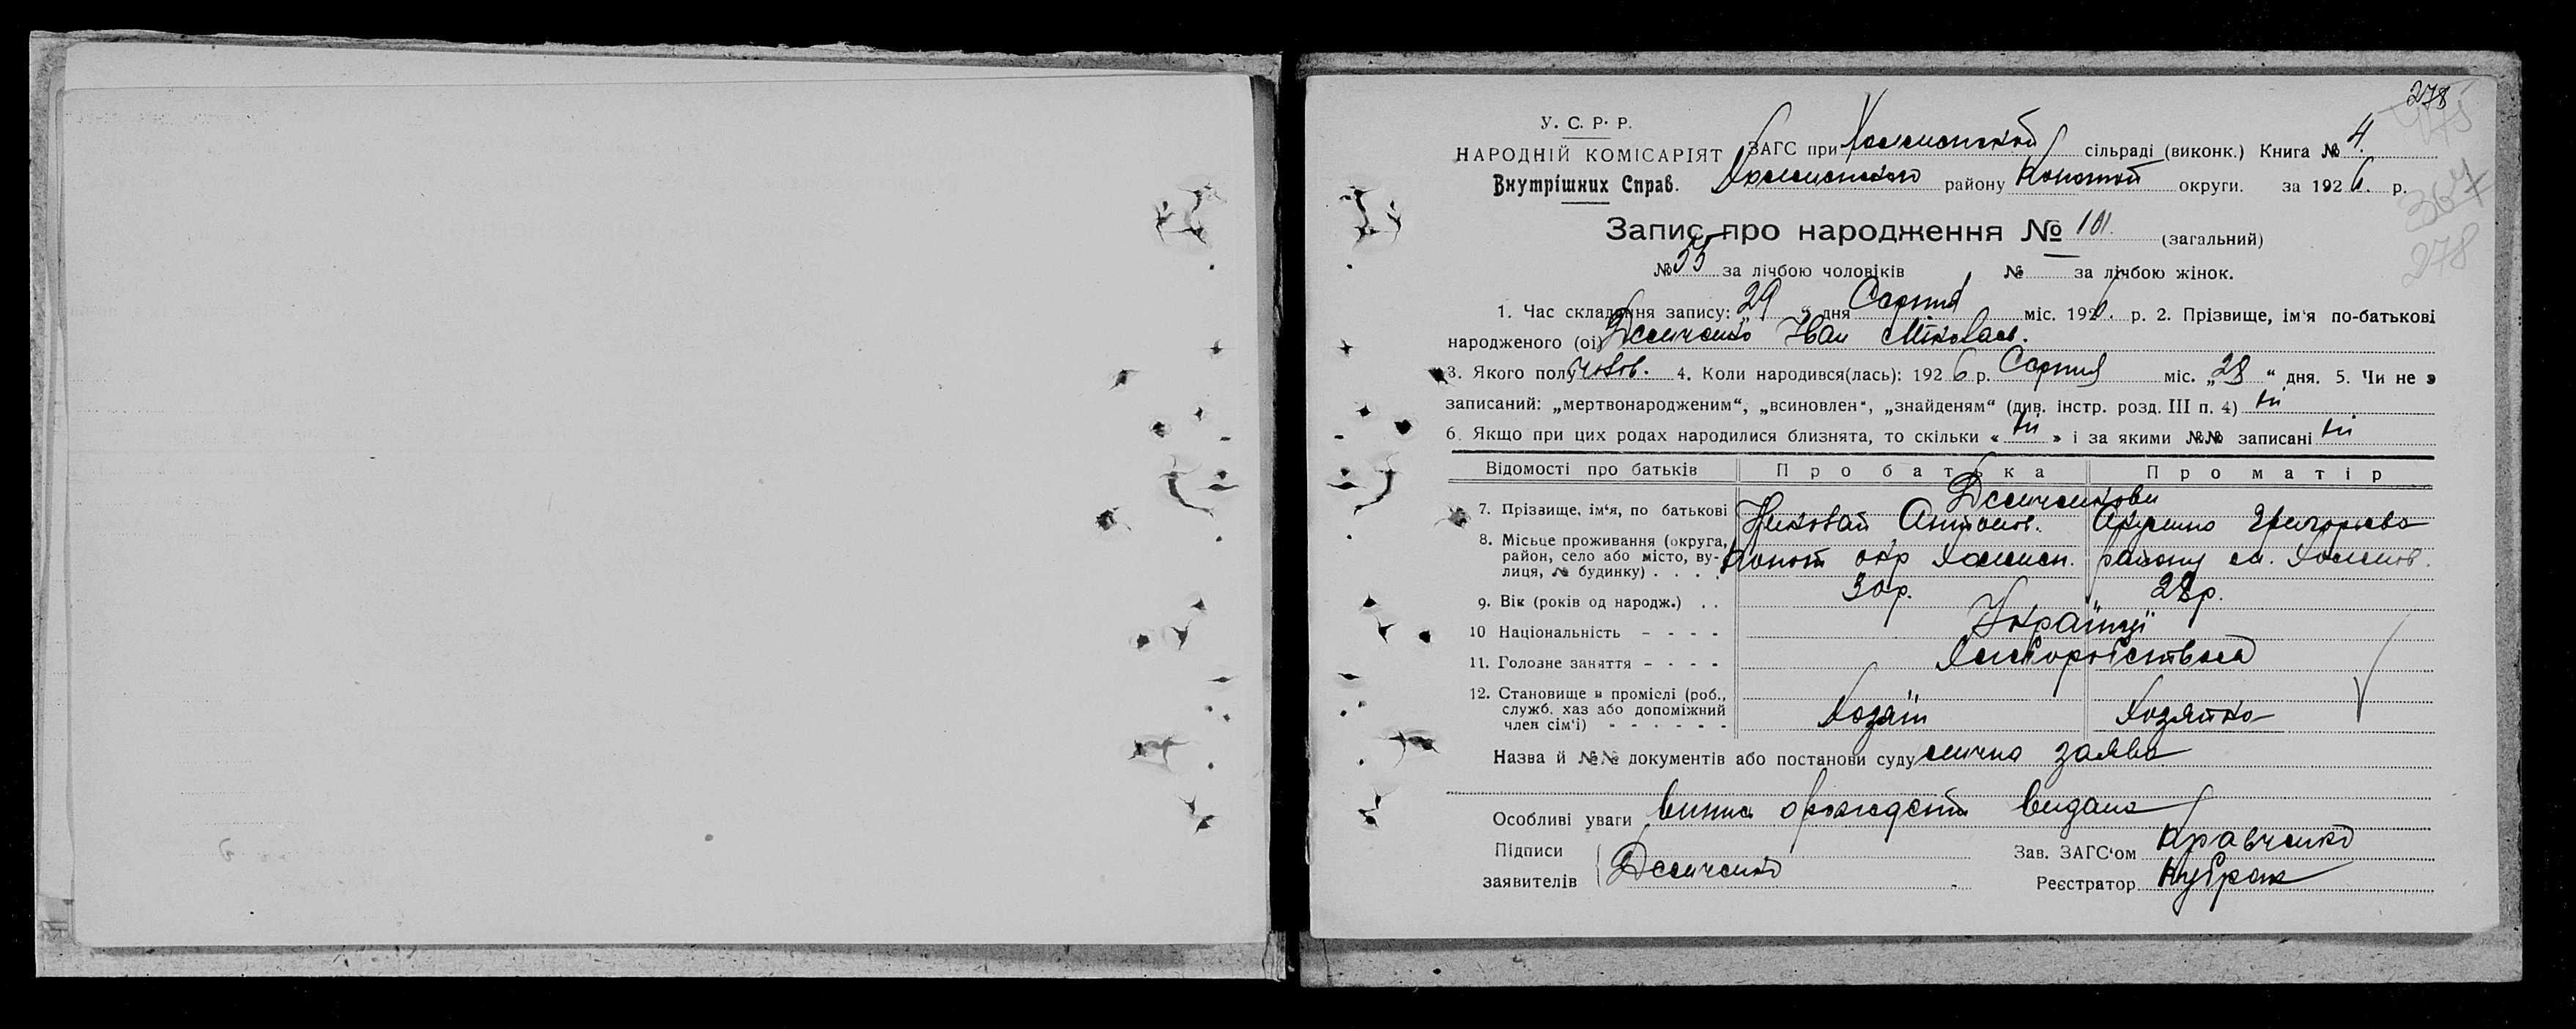 278
175
У. С. Р. Р.
НАРОДНІЙ КОМІСАРІЯТ ЗАГС при сільраді (виконк.) Книга № 4.
Внутрішних Справ. району Конотоп округи. за 1926. р.
367
Запис про народження № 101. (загальний)
278
№ 55 за лічбою чоловіків № за лічбою жінок.
1. Час складання запису: „29 “ дня Серпня міс. 1926. р. 2. Прізвище, ім'я по-батькові
народженого (ої) Демченко Іван Міколаєв.
3. Якого полу чолов. 4. Коли народився(лась): 1926 р. Серпня міс. „28 “ дня. 5. Чи не є
записаний: „мертвонародженим“, „всиновлен“, „знайденям“ (див. інстр. розд. III п. 4) ні
6. Якщо при цих родах народилися близнята, то скільки « ні » і за якими №№ записані ні
Відомості про батьків Про батька Про матір
Демченкови
7. Прізвище, ім'я, по батькові Николай Антонов. Григорьева
8. Місьце проживання (округа,
район, село або місто, ву-
лиця, № будинку) . . . . Конот окр району
9. Вік (років од народж.) . . 30р. 28р.
10 Національність - - - - Українці
11. Головне заняття - - - - Хліборобством
12. Становище в проміслі (роб.,
служб. хаз або допоміжний
член сім'ї) - - - - - - Хозяїн Хозяйка
Назва й №№ документів або постанови суду лична заява
Особливі уваги видана
Підписи
заявителів Демченко
Зав. ЗАГС'ом Кравченко
Реєстратор